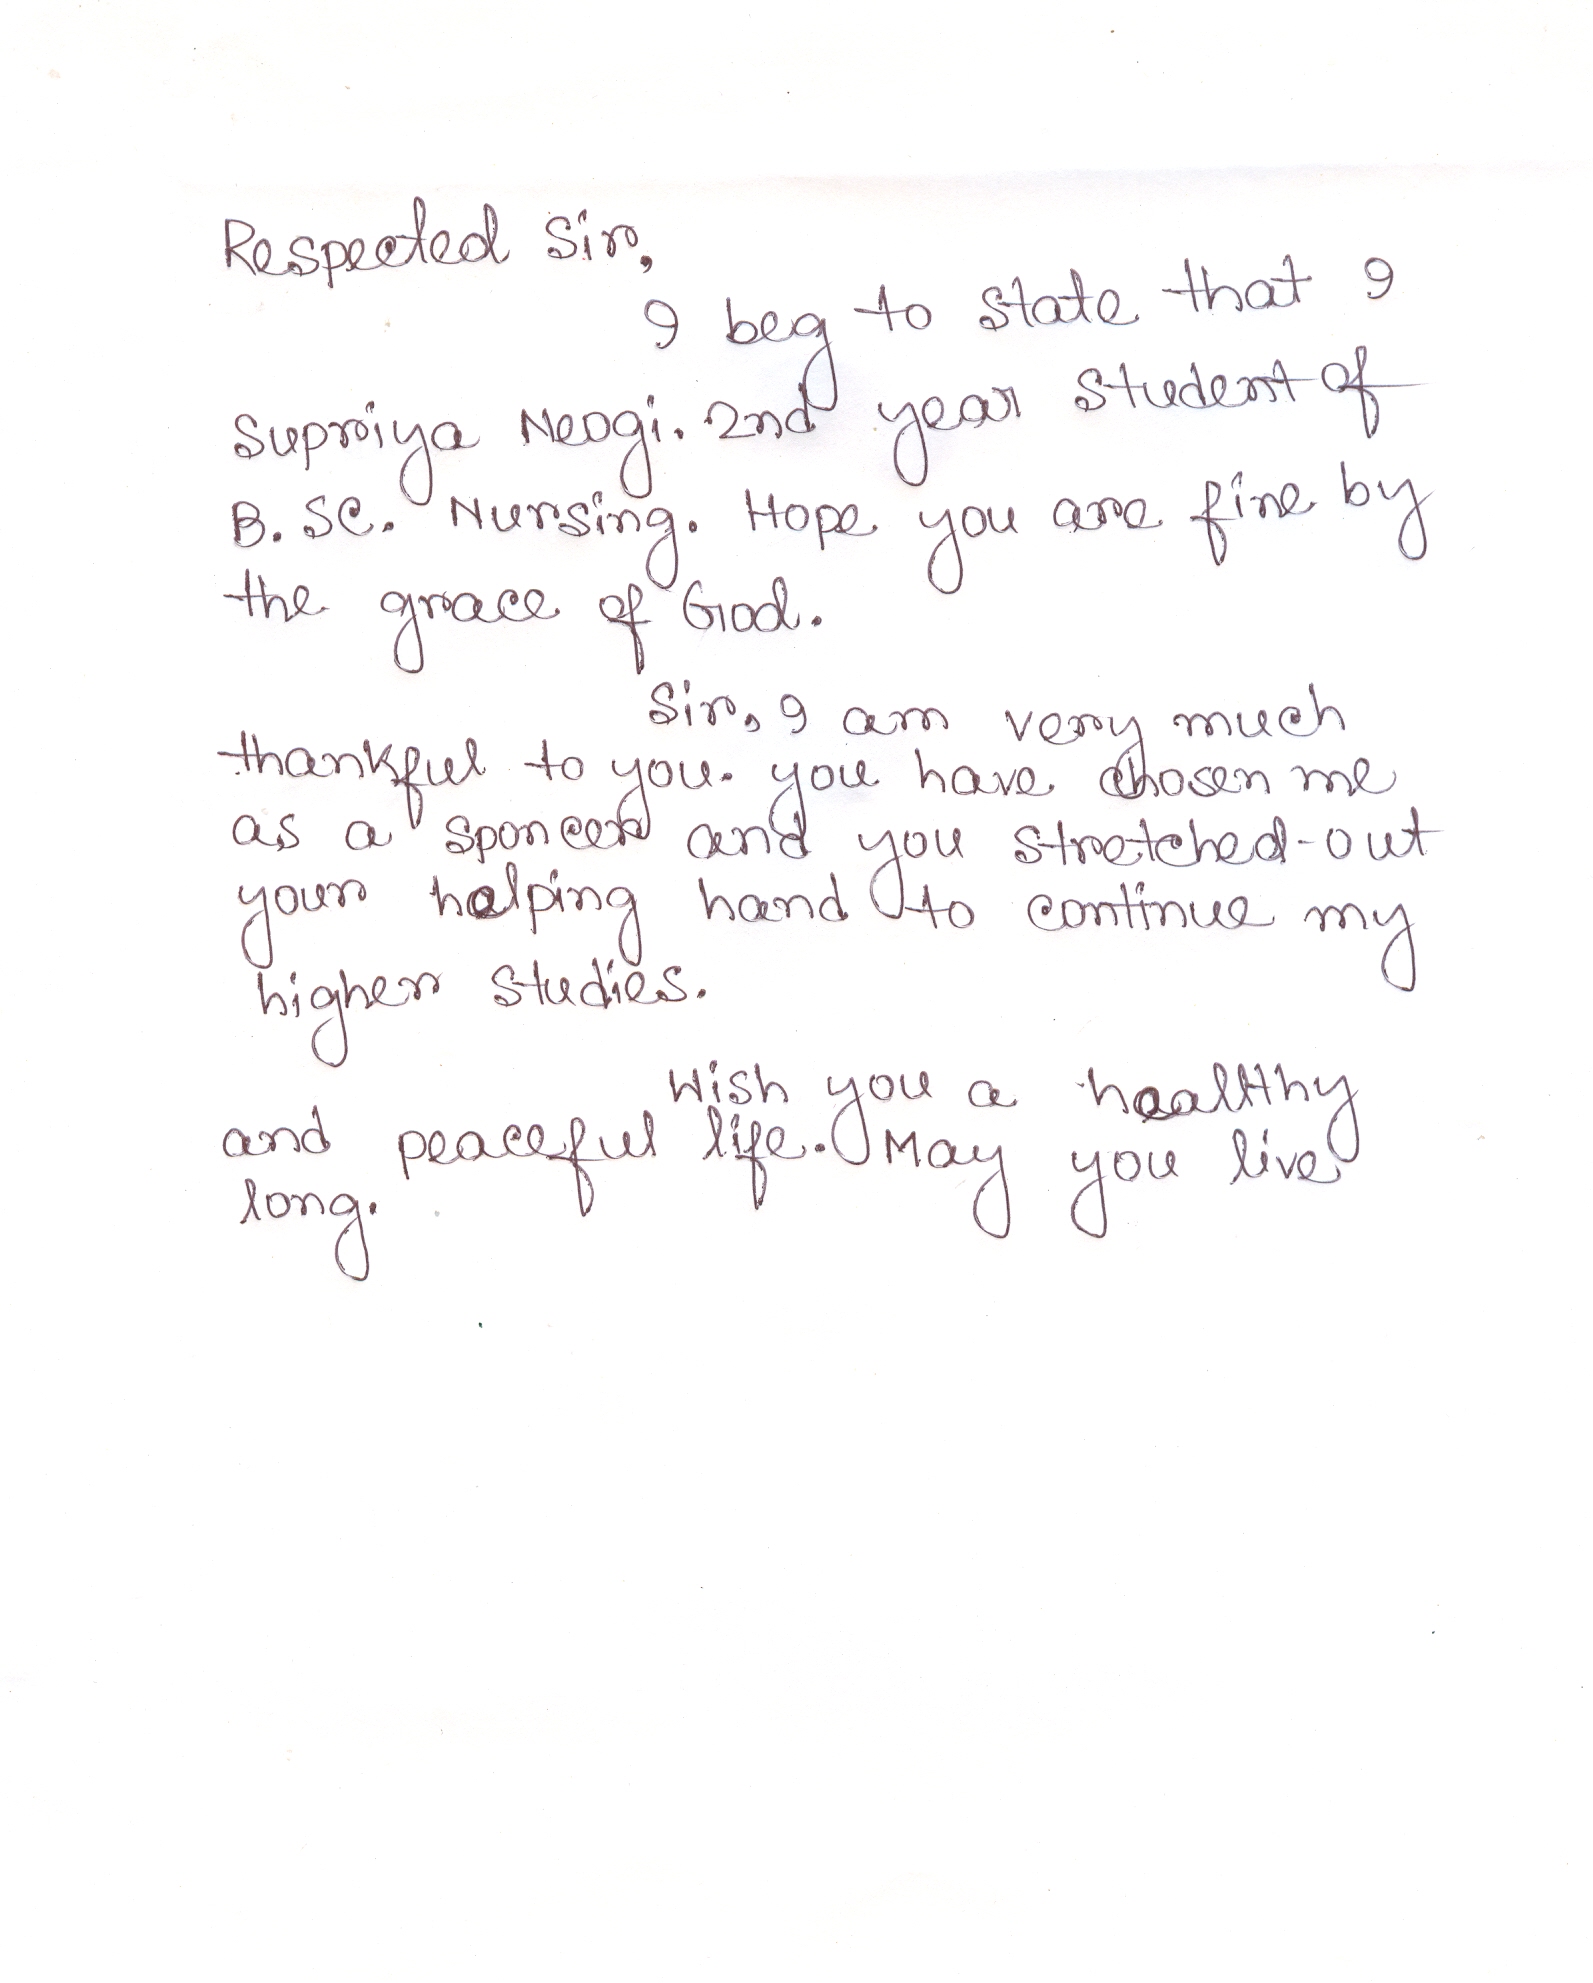 Respected Sir,
I beg to state that I
Supriya Neogi. 2nd year student of
B. SC. Nursing. Hope you are fine by
the grace of God.
Sir, I am very much
thankful to you. you have chosen me
as a sponcer and you stretched-out
your helping hand to continue my
higher studies.
Wish you a healthy
and peaceful life. May you live
long.